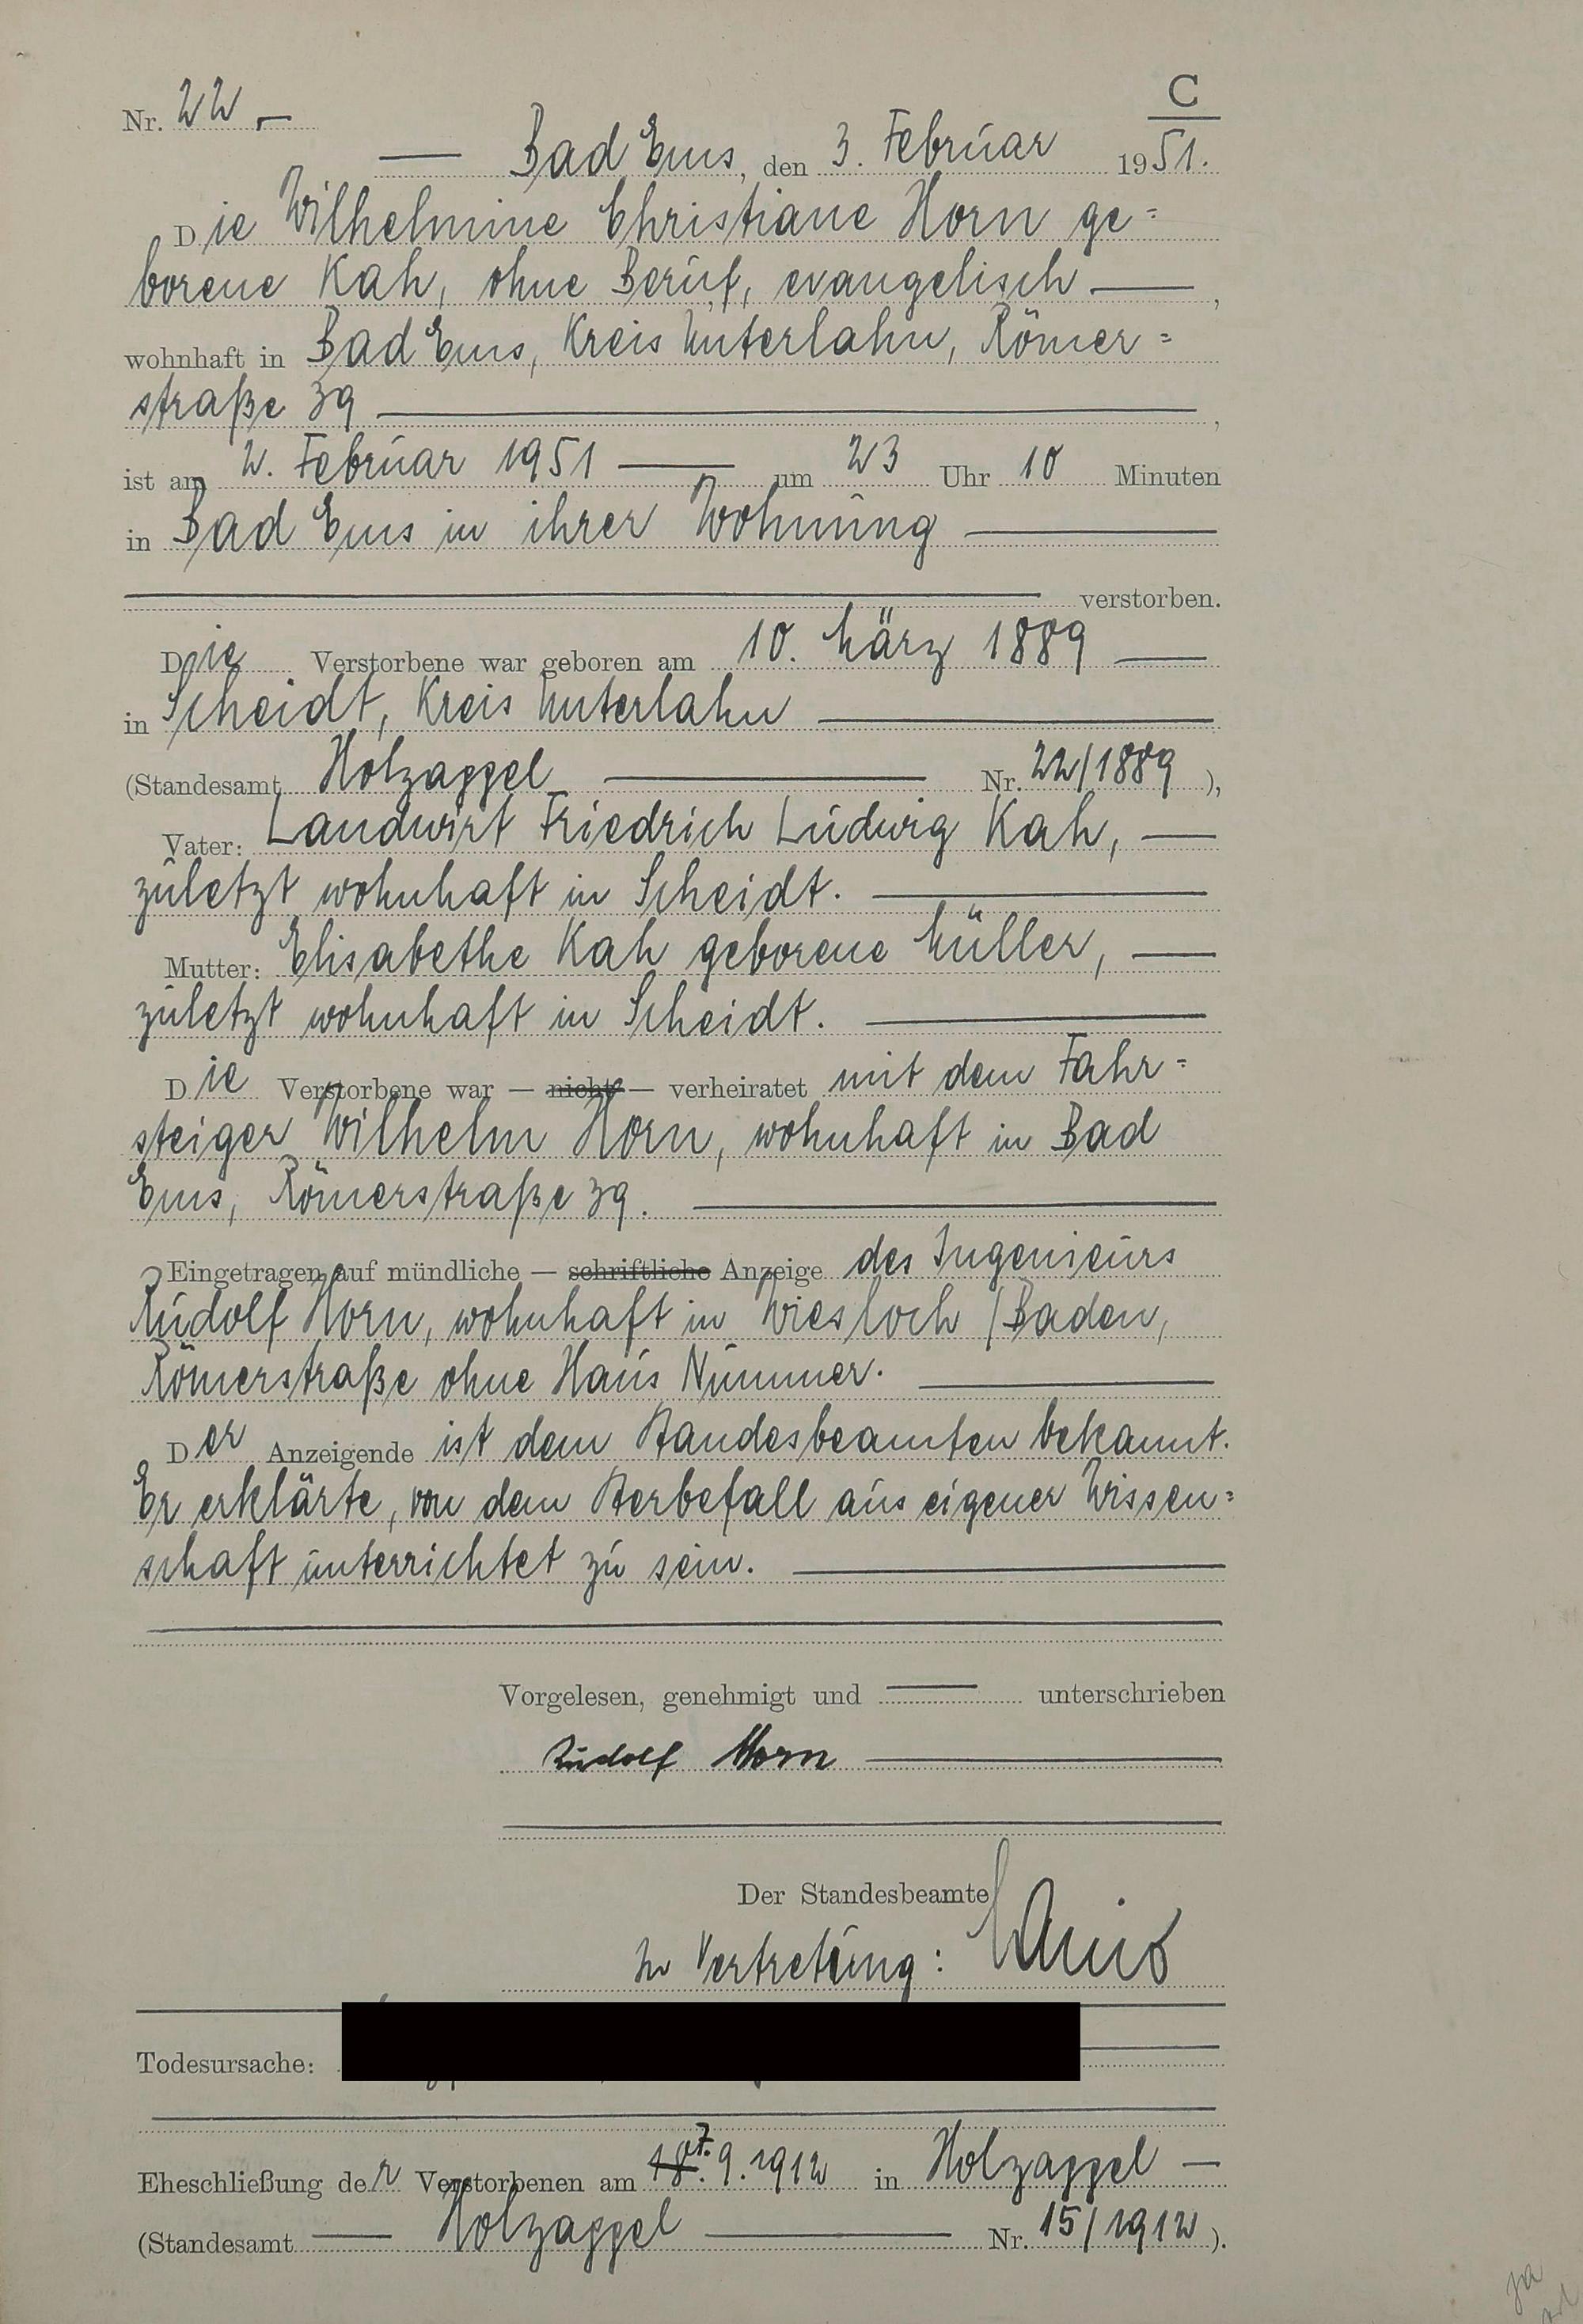 C
Nr. 22.
Bad Ems, den 3. Februar 1951.
Die Wilhelmine Christiane Horn ge=
borene Kah, ohne Beruf, evangelisch ,
wohnhaft in Bad Ems, Kreis Unterlahn, Römer=
straße 39 ,
ist am 2. Februar 1951 um 23 Uhr 10 Minuten
in Bad Ems in ihrer Wohnung
verstorben.
Die Verstorbene war geboren am 10. März 1889
in Scheidt, Kreis Unterlahn
(Standesamt Holzappel Nr. 22/1889 ),
Vater: Landwirt Friedrich Ludwig Kah,
zuletzt wohnhaft in Scheidt.
Mutter: Elisabethe Kah geborene Müller,
zuletzt wohnhaft in Scheidt.
Die Verstorbene war — nicht — verheiratet mit dem Fahr=
steiger Wilhelm Horn, wohnhaft in Bad
Ems, Römerstraße 39.
Eingetragen auf mündliche — schriftliche Anzeige des Ingenieurs
Rudolf Horn, wohnhaft in Wiesloch /Baden,
Römerstraße ohne Haus Nummer.
Der Anzeigende ist dem Standesbeamten bekannt.
Er erklärte, von dem Sterbefall aus eigener Wissen=
schaft unterrichtet zu sein.
Vorgelesen, genehmigt und unterschrieben
Rudolf Horn
Der Standesbeamte
In Vertretung:
Todesursache:
Eheschließung der Verstorbenen am 18. 7. 9. 1912 in Holzappel
(Standesamt Holzappel Nr. 15/1912 ).